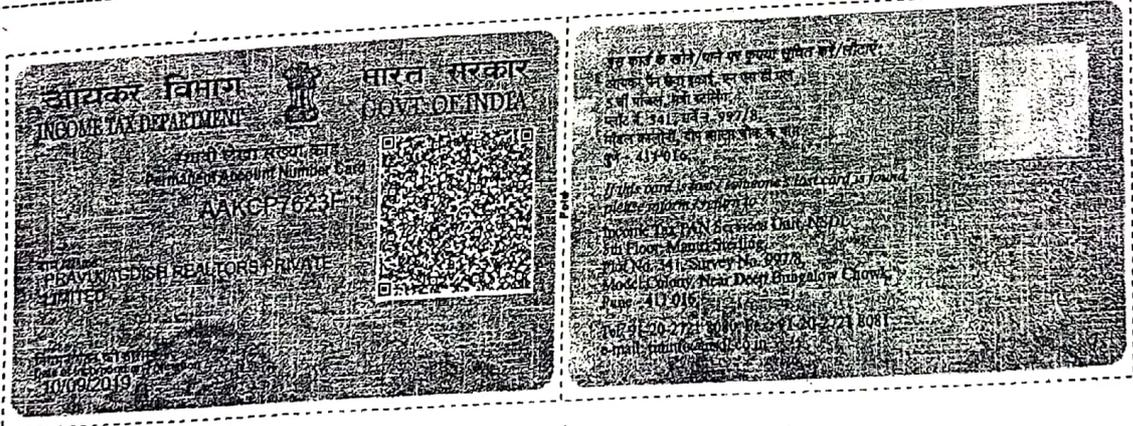 आयकर विभाग
INCOME TAX DEPARTMENT
भारत सरकार
GOVT. OF INDIA
स्थायी लेखा संख्या कार्ड
Permanent Account Number Card
AAKCP7623F
नाम / Name
PRAVI KJAGDISH REALTORS PRIVATE
LIMITED
Date of Incorporation / Formation
10/09/2019
Fold
इस कार्ड के खोने/पाने पर कृपया सूचित करें/लौटाएं:
आयकर पैन सेवा इकाई, एन एस डी एल
मंत्री स्टर्लिंग,
प्लॉट नं. 341, सर्वे नं. 997/8,
मॉडल कालोनी, दीप बंगला चौक के पास,
पुणे - 411 016.
If this card is lost / someone's lost card is found,
please inform / return to :
Income Tax PAN Services Unit, NSDL
5th Floor, Mantri Sterling,
Plot No. 341, Survey No. 997/8,
Model Colony, Near Deep Bungalow Chowk,
Pune - 411 016.
Tel: 91-20-2721 8080, Fax: 91-20-2721 8081
e-mail: